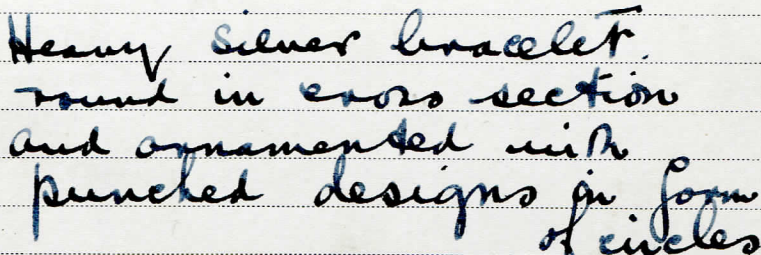 Heavy silver bracelet.
round in cross section
and ornamented with
punched designs in form
of circles